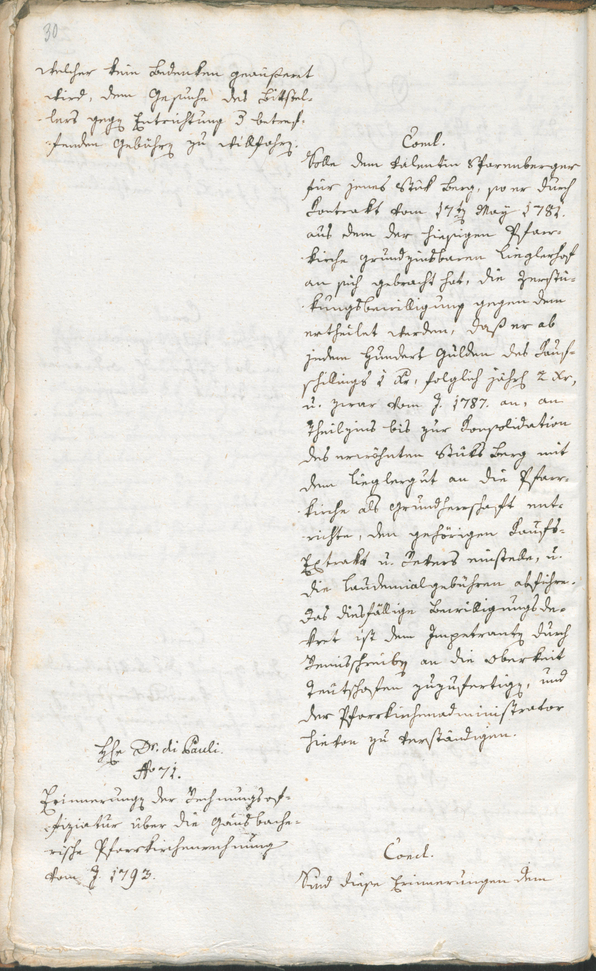 30
welcher kein Bedenken geäußeret
wird, dem Gesuche des Bittstel-
lers gegen Entrichtung 3 betref-
fenden Gebühren zu willfahren.
Concl.
Solle dem Valentin Sparenberger
für jenes Stük Berg, so er durch
Kontrakt vom 17ten May 1781.
aus dem der hiesigen Pfarr-
kirche grundzinsbaren Zieglerhof
an sich gebracht hat, die Zerstü-
kungsbewilligung gegen dem
ertheilet werden, daß er ab
jedem Hundert Gulden des Kauf-
schillings 1 Kr, folglich jährl. 2 Kr,
u. zwar vom J. 1787. an, an
Theilzins bis zur Konsolidation
des erwöhnten Stüks Berg mit
dem Zieglergut an die Pfarr-
kirche als Grundherrschaft ent-
richte, den gehörigen Kaufs-
Extrakt u. Revers einstelle, u.
die Laudemialgebühren abführe.
Das diesfällige Bewilligungsde-
kret ist dem Impetranten durch
Compasschreiben an die Oberkeit
Teutschofen zuzufertigen, und
der Pfarrkirchenadministrator
hievon zu verständigen.
Hr. Dr. di Pauli.
No 71.
Erinnerungen der Rechnungsof-
fiziatur über die Gaudsbache-
rische Pfarrkirchenrechnung
vom J. 1793.
Concl.
Sind diese Erinnerungen dem